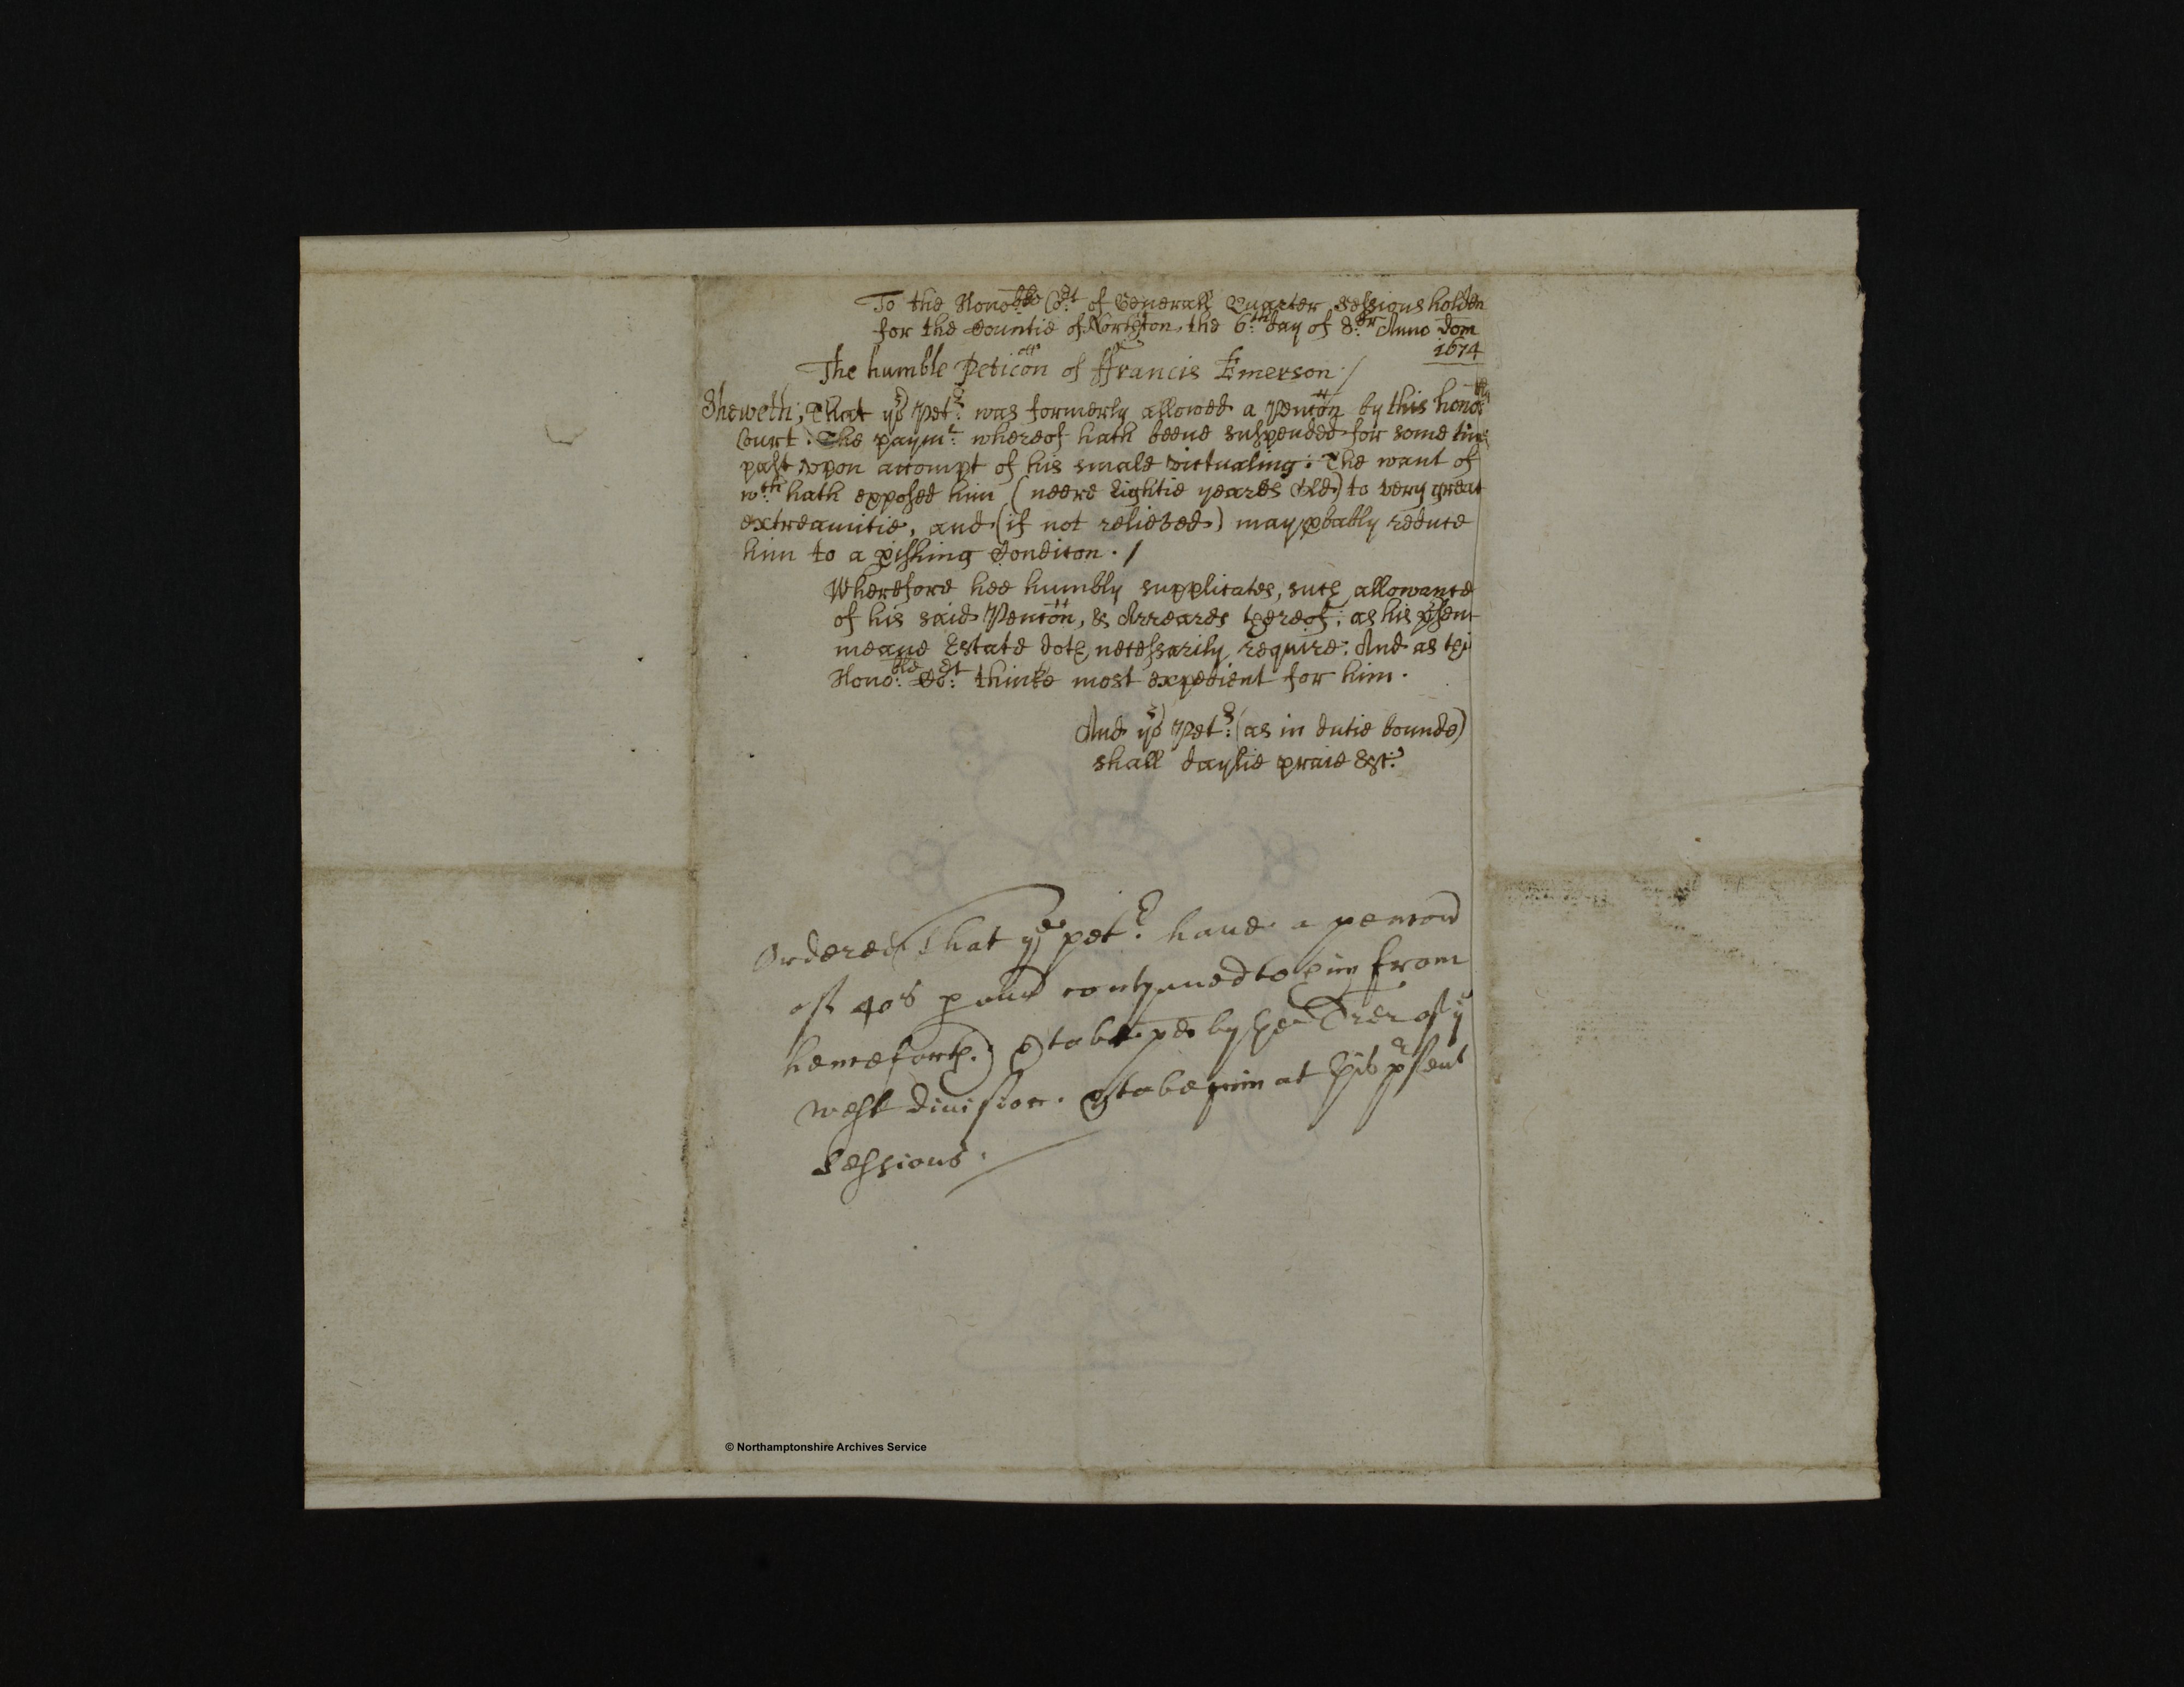 To the Hono:ble Co:rt of Generall Quarter Sessions holden
for the Countie of Northton, the 6:th day of 8:br Anno Dom
1674
The humble Peticon of ffrancis Emerson /
Sheweth; That yor Petr: was formerly allowed a Pencon by this hono:ble
Court: The paymt: whereof hath beene suspended for some time
past upon accompt of his smale victualing: The want of
wch: hath exposed him (neere Eightie yeares Old) to very great
extreamitie, and (if not relieved) may pbably reduce
him to a pishing Condicon. /
Wherefore hee humbly supplicates, such allowance
of his said Pencon, & Arreares thereof: as his psent
meane Estate doth necessarily require: And as this
Hono:ble Co:rt thinke most expedient for him.
And yor Petr: (as in dutie bounde)
shall daylie praie &c:
Ordered That ye petr: have a pencon
of 40s p ann contynued to him from
henceforth. & to be pd by the Trer of ye
west division. & to begin at this psent
Sessions.
© Northamptonshire Archives Service